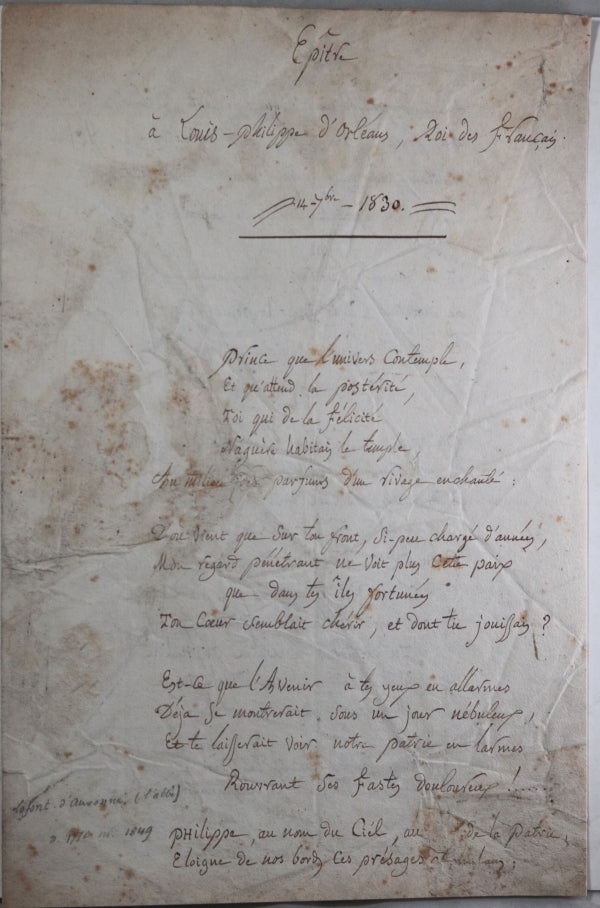 Epître
à Louis-philippe d'Orléans, Roi des français.
14-7bre-1830.
Prince que l'univers Contemple,
Et qu'attend la postérité,
Toi qui de la félicité
Naguère habitais le temple,
Au milieu des parfums d'un rivage enchanté:
D'où vient que sur ton front, si-peu chargé d'années,
Mon regard pénétrant ne voit plus Cette paix
que dans tes îles fortunées
Ton Cœur semblait chérir, et dont tu jouissais?
Est-ce que l'Avenir à tes yeux en allarmes
Déja se montrerait sous un jour nébuleux,
Et te laisserait voir notre patrie en larmes
Rouvrant ses fastes douloureux!......
Lafont d'Aussonne, (l'abbé)
m. 1849
PHilippe, au nom du Ciél, au de la patrie,
Eloigne de nos bords Ces présages